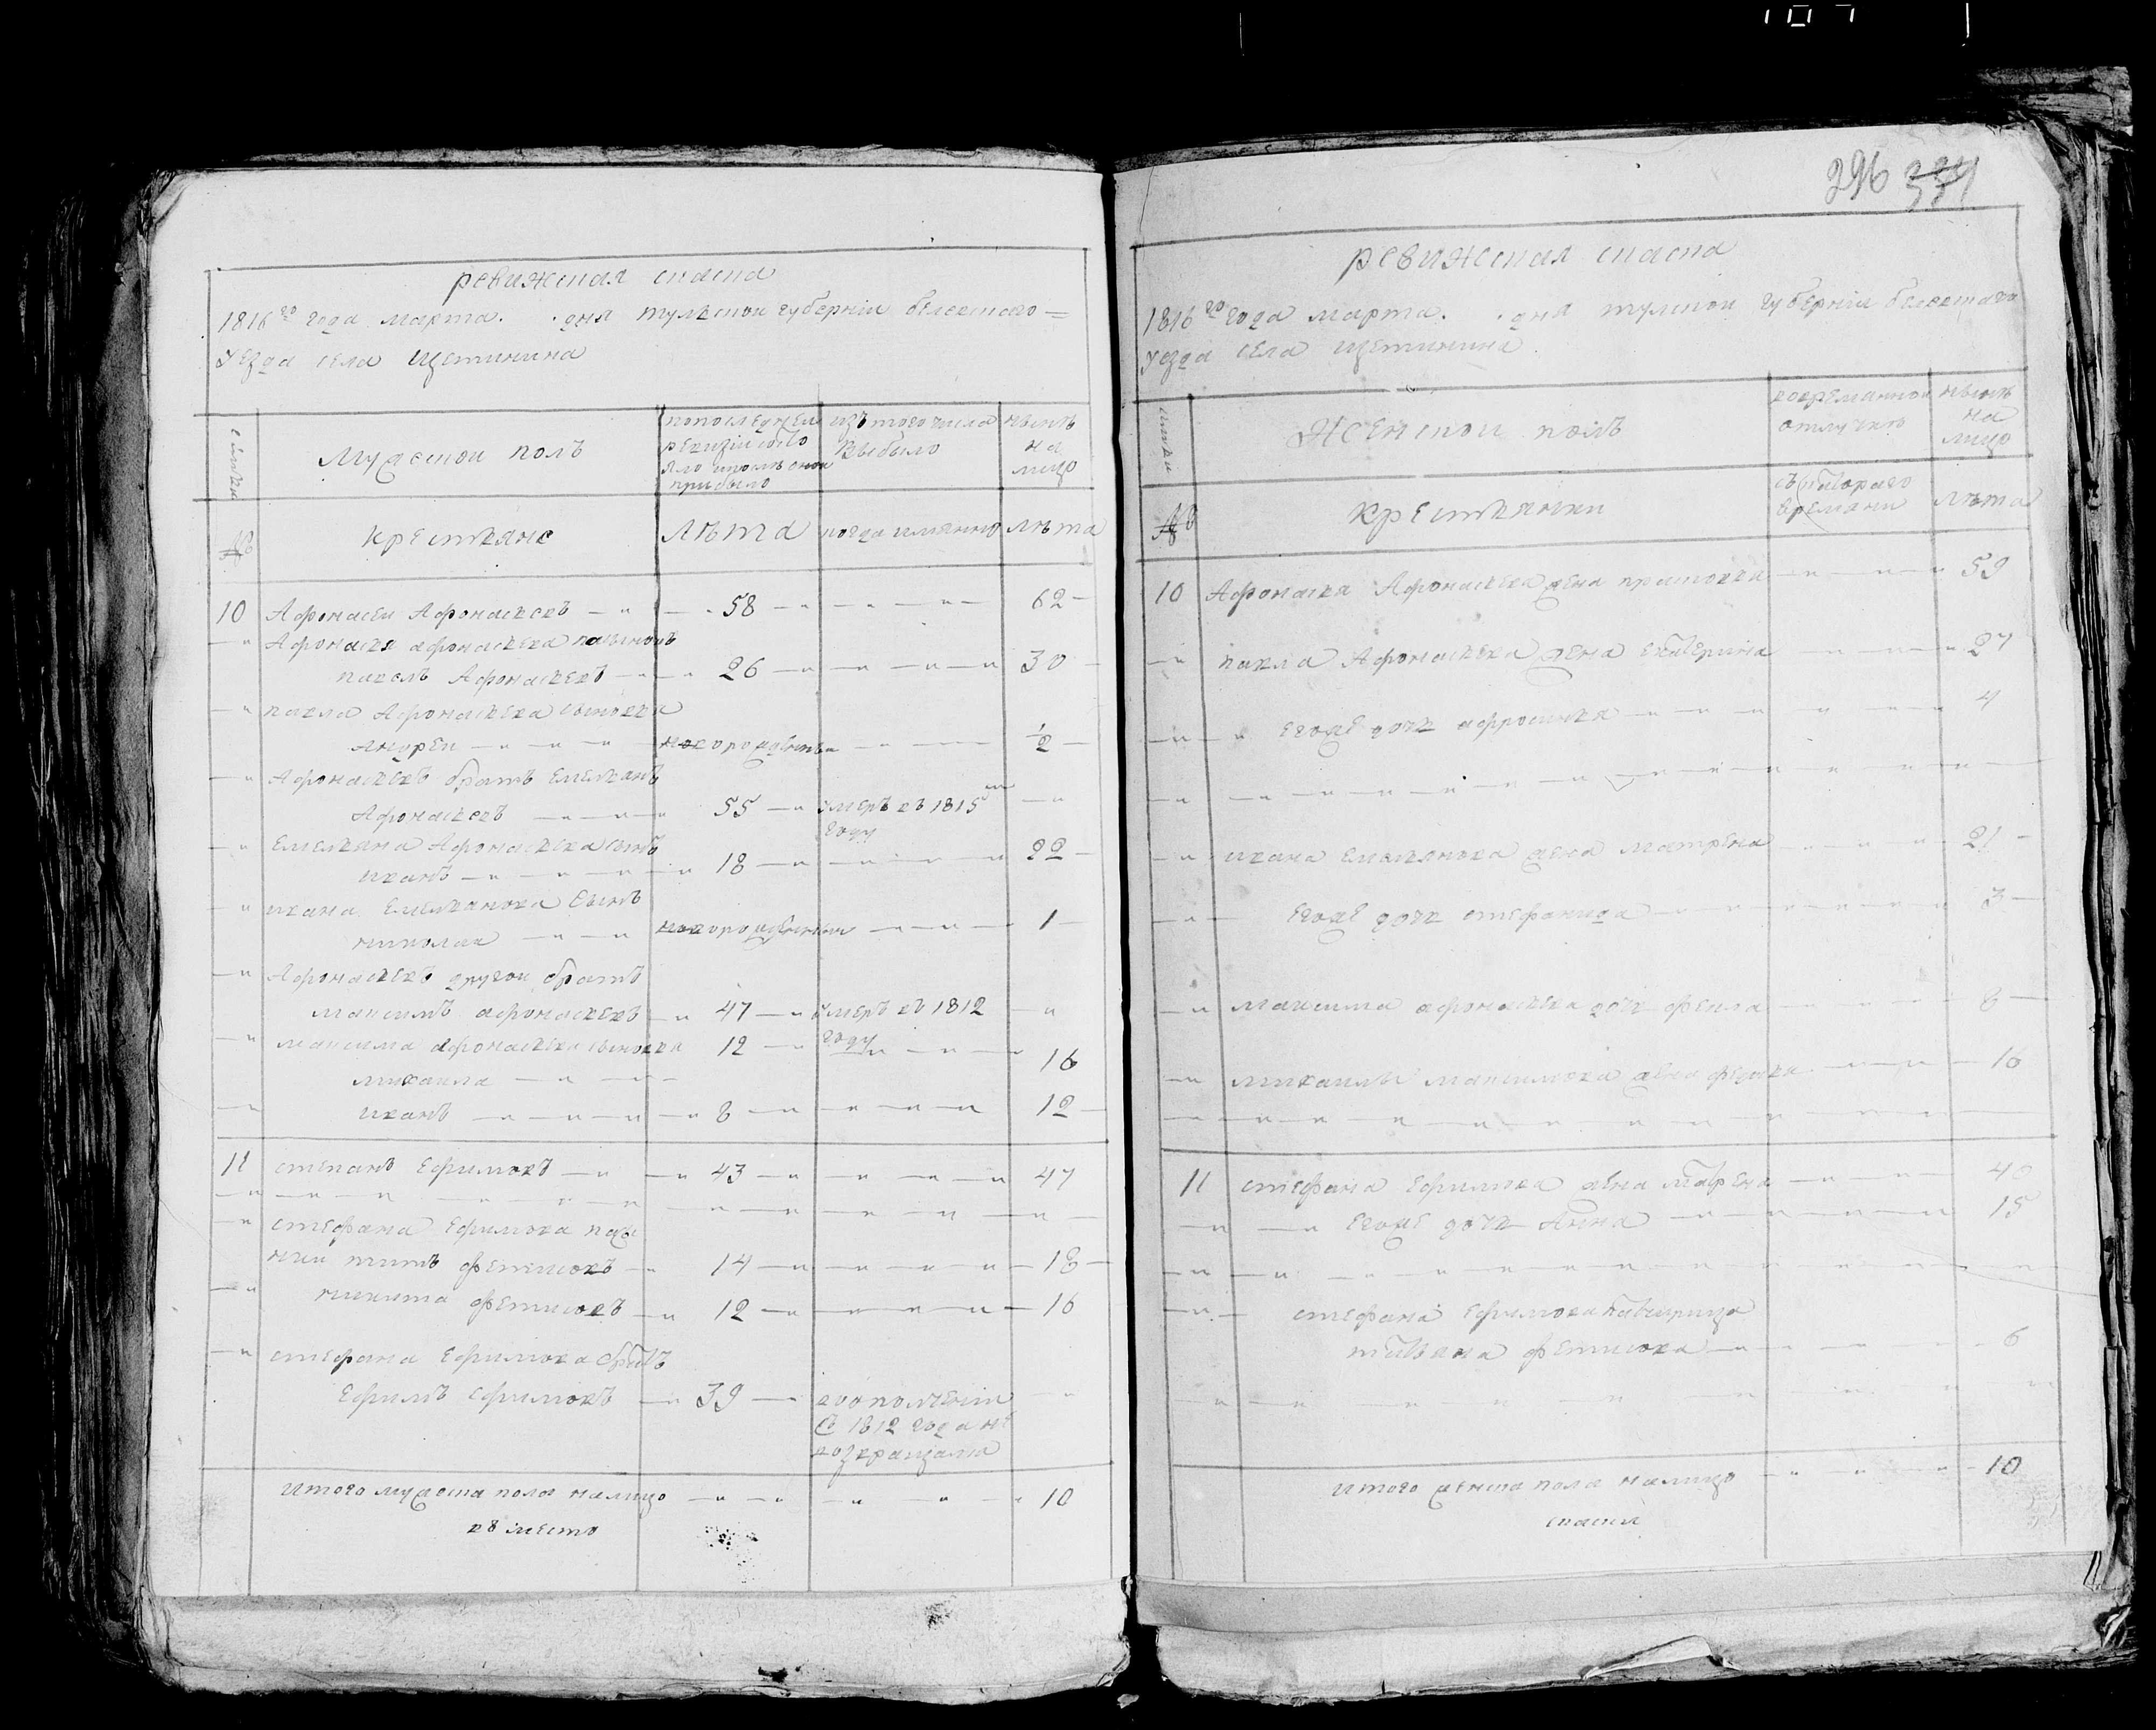 296 334
ревижская скаска
1816 го года марта. дня тулской губернiи белевскаго
уезда села Щетинина
семьи
Мужской полъ
по последней
ревизiи состо
яло и после оной
прибыло
изъ того числа
выбыло
ныне
на
лицо
№
крестьяне
лѣта
когда имянно
лѣта
10 Афонасей Афонасьевъ 58 62
Афонасья афонасьева
павелъ Афонасьевъ 26 30
павла Афонасьева
андрей новорожденный ½
Афонасьевъ братъ Емельянъ
Афонасьевъ 55 умеръ въ 1815
году
Емельяна Афонасьева сынъ
иванъ 18 22
ивана Емельянова сынъ
николай новорожденный 1
Афонасьевъ другой братъ
максимъ афонасьевъ 47 умеръ въ 1812
году
максима афонасьева сыновья 12 16
михаила
иванъ 8 12
11 степанъ Ефимовъ 43 47
стефана Ефимова
титъ фетисовъ 14 18
никита фетисовъ 12 16
стефана Ефимова братъ
Ефимъ Ефимовъ 39 в ополченiи
с 1812 года не
возвращался
итого мужеска пола налицо 10
ревижская скаска
1816 го года марта. дня тулской губернiи белевскаго
уезда села щетинина
семьи
Женской полъ
во временной
отлучке
ныне
на
лицо
№
крестьянки
съ котораго
времяни
лѣта
10 Афонасья Афонасьева жена 59
павла Афонасьева жена екатерина 27
его же дочь афросинья 4
ивана емельянова жена матрена 21
его же дочь стефанида 3
максима афонасьева дочь фекла 8
михаилы максимова жена 16
11 стефана Ефимова жена 40
его же дочь Анна 15
стефана Ефимова
татьяна фетисова 6
итого женска пола налицо 10